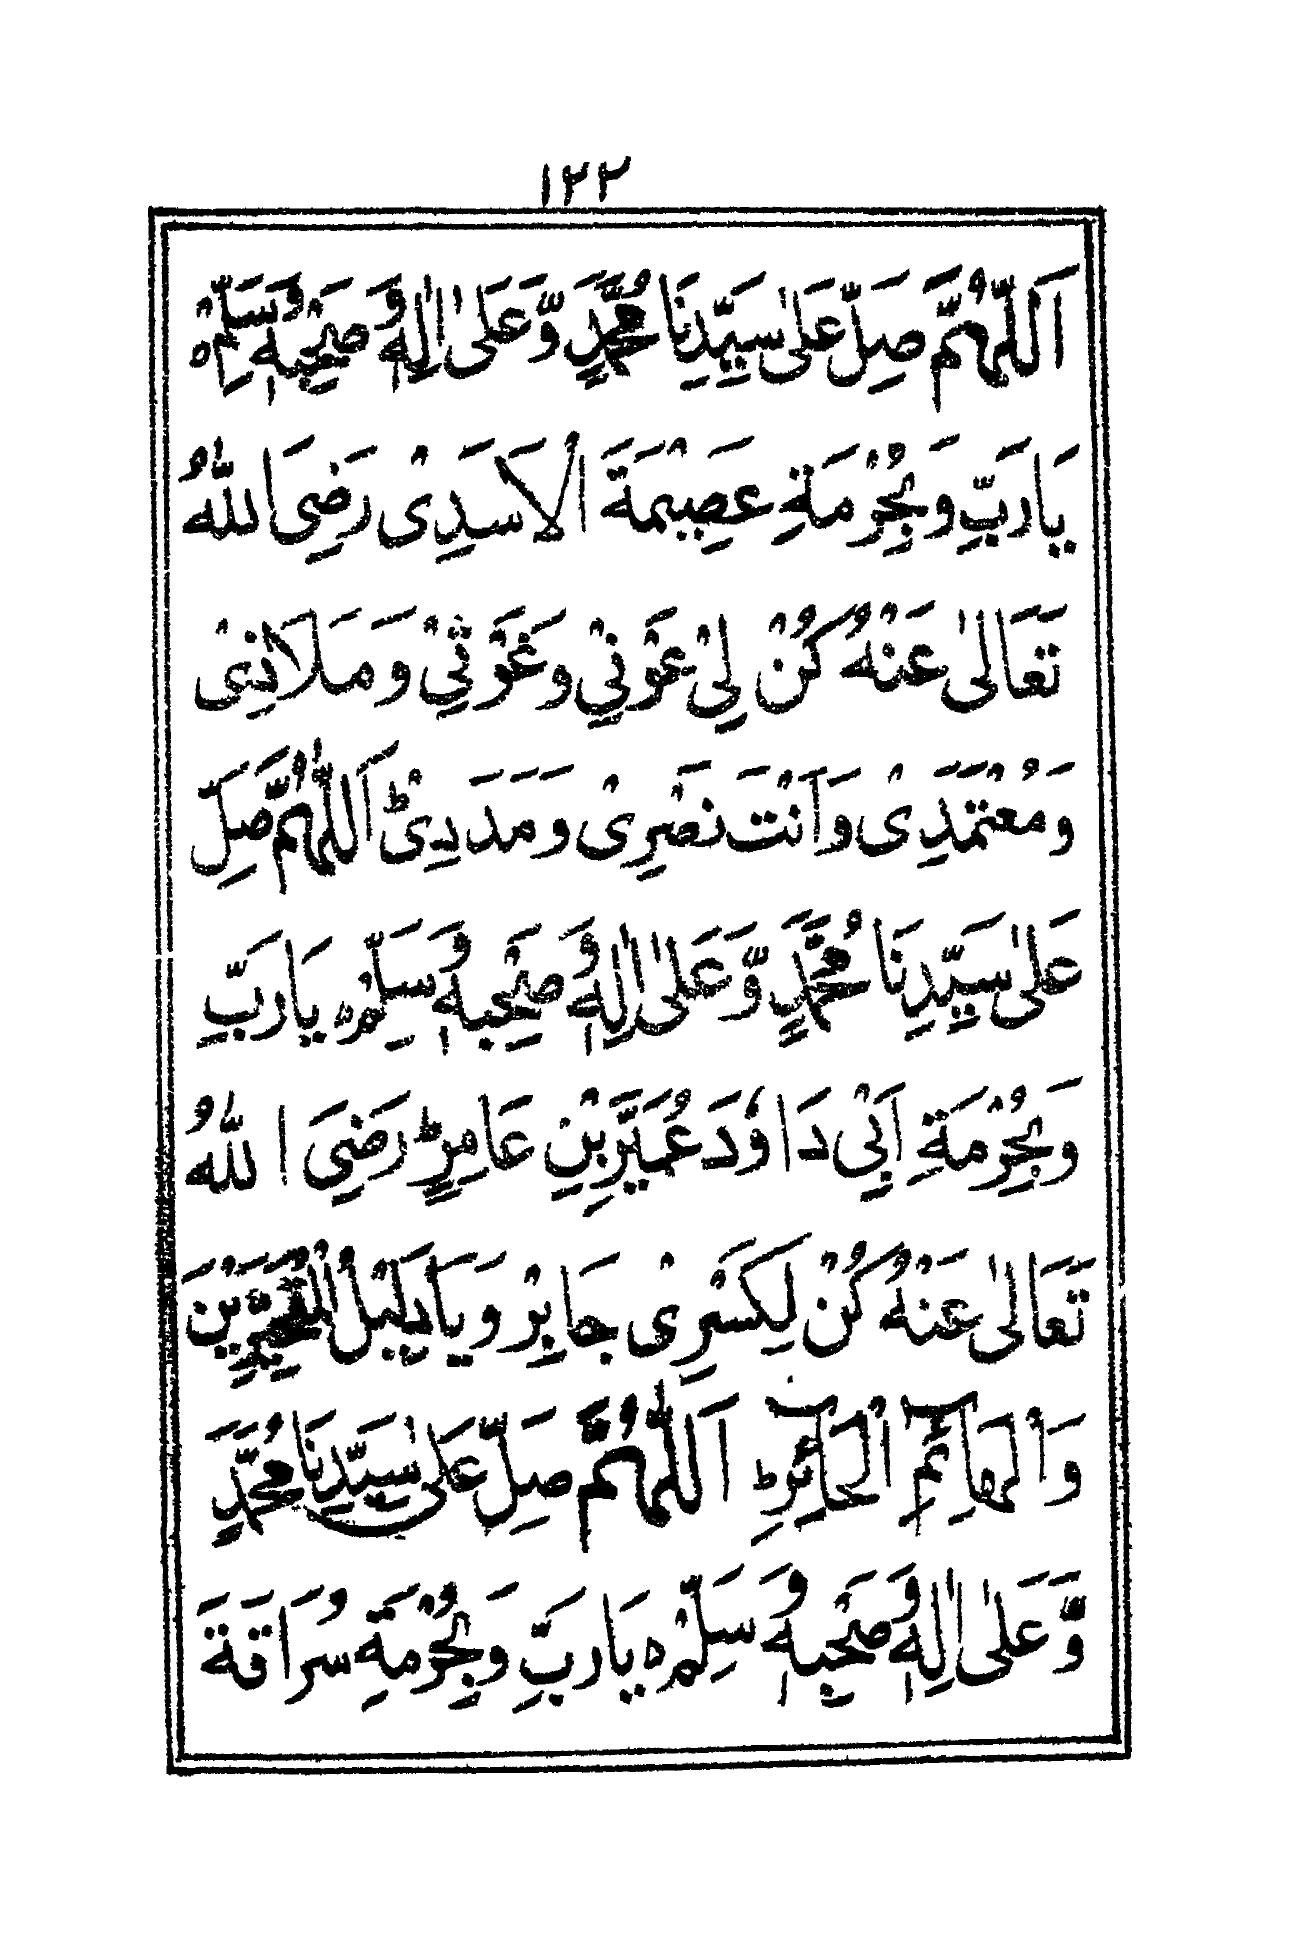 ١٢٢
اَللّٰهُمَّ صَلِّ عَلٰى سَيِّدِنَا مُحَمَّدٍ وَّعَلٰى اٰلِهٖ وَصَحْبِهٖ وَسَلِّمْ ہ
يَارَبِّ وَبِحُرْمَةِ عَصِيْمَةَ الْاَسَدِىْ رَضِىَ اللّٰهُ
تَعَالٰى عَنْهُ كُنْ لِىْ عَوْنِىْ وَغَوْثِىْ وَمَلَاذِىْ
وَمُعْتَمَدِىْ وَاَنْتَ نَصْرِىْ وَمَدَدِىْ ؕ اَللّٰهُمَّ صَلِّ
عَلٰى سَيِّدِنَا مُحَمَّدٍ وَّعَلٰى اٰلِهٖ وَصَحْبِهٖ وَسَلِّمْ ہ يَارَبِّ
وَبِحُرْمَةِ اَبِىْ دَاوٗدَ عُمَيْرِ بْنِ عَامِرٍ ؕ رَضِىَ اللّٰهُ
تَعَالٰى عَنْهُ كُنْ لِكَسْرِىْ جَابِرْ وَيَا دَلِيْلَ الْمُتَحَيِّرِيْنَ
وَالْهَائِمِ الْحَائِرِ ؕ اَللّٰهُمَّ صَلِّ عَلٰى سَيِّدِنَا مُحَمَّدٍ
وَّعَلٰى اٰلِهٖ وَصَحْبِهٖ وَسَلِّمْ ہ يَارَبِّ وَبِحُرْمَةِ سُرَاقَةَ